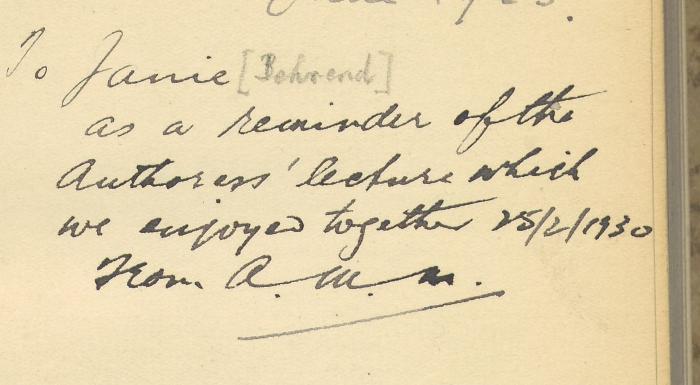 1923.
To Janie [Behrend]
as a reminder of the
Authoress' lecture which
we enjoyed together 25/2/1930
From A. M. M.